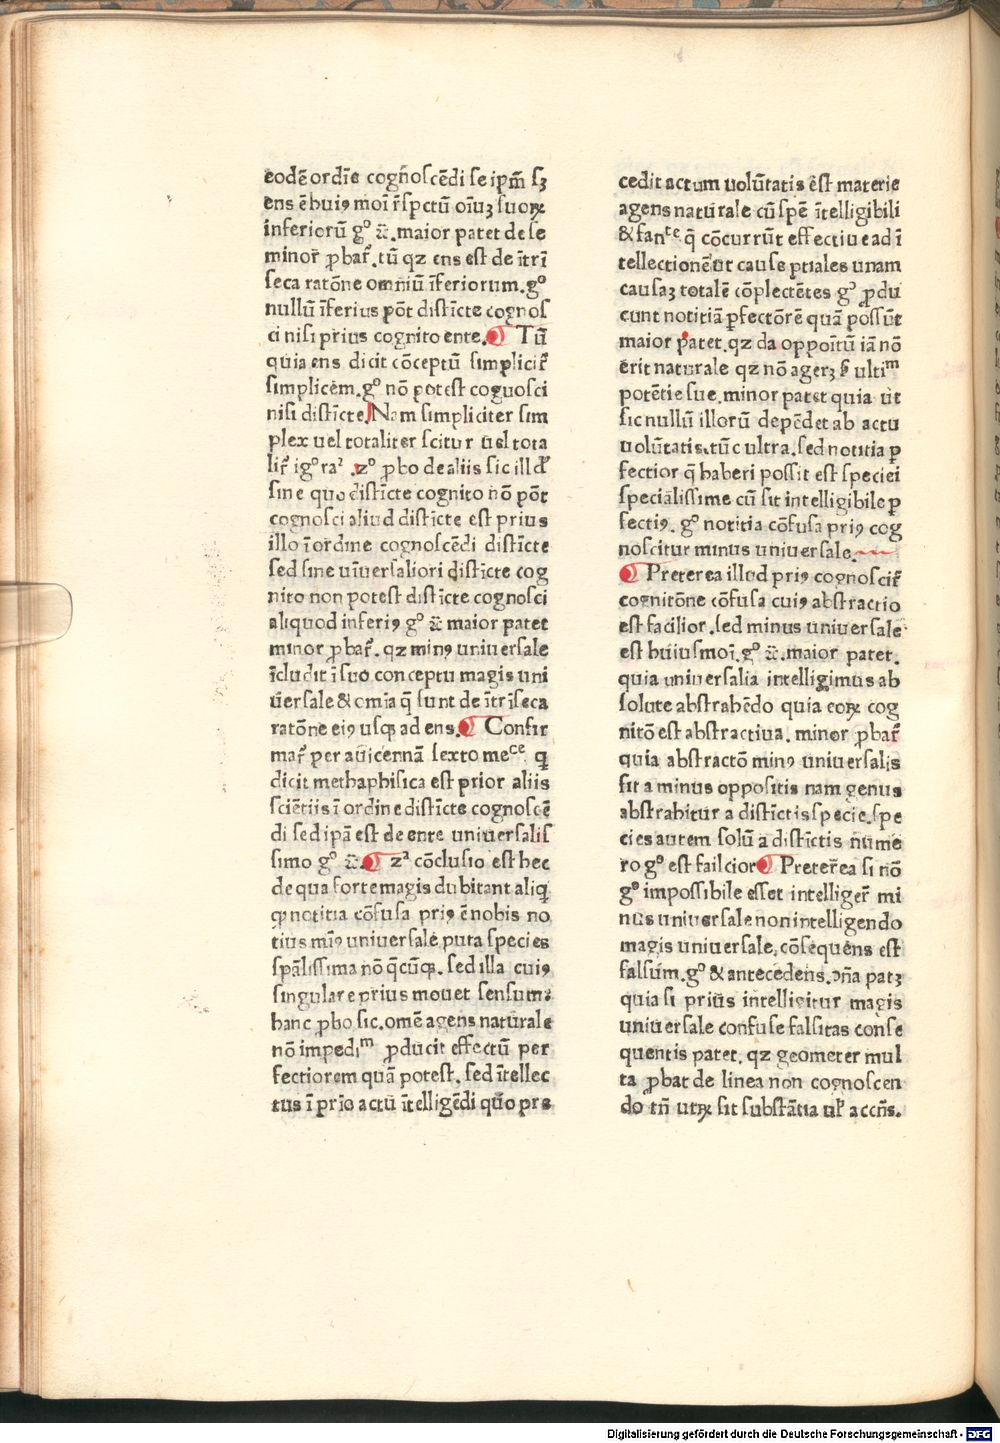 eodē ordīe cogñoscēdi se ip̄m sꝫ
ens ē huiꝰ moi r̄spctū oīuꝫ suoꝝ
inferiorū gͦ ⁊c̄. maior patet de se
minor̄ ꝓbaſ. tū qꝫ ens est de ītrī
seca ratōne omniū īferiorum. gͦ
nullū īferius pōt distīcte cognos
ci nisi prius cognito ente. ¶ Tū
quia ens dicit cōceptū simplicit̄
simplicem. gͦ nō potest coguosci
nisi distīcte Nam simpliciter sim
plex uel totaliter scitur uel tota
lit̄ igͦraᵗ. zͦ ꝓbo de aliis sic illđ
sine quo distīcte cognito nō pōt
cognosci aliud distīcte est prius
illo ī ordine cognoscēdi distīcte
sed sine uīuersaliori distīcte cog
nito non potest distīcte cognosci
aliquod inferiꝰ gͦ ⁊c̄ maior patet
minor ꝓbat̄. qꝫ minꝰ uniuersale
īcludit ī suo conceptu magis uni
uersale & omīa q̄ sunt de ītrīseca
ratōne eiꝰ usqꝫ ad ens. ¶ Confir
mat̄ per auicennā sexto meᶜᵉ ꝗ
dicit methaphisica est prior aliis
sciētiis ī ordine distīcte cognoscē
di sed ipā est de ente uniuersalis
simo gͦ ⁊c̄. ¶ zᵃ cōclusio est hec
de qua forte magis dubitant aliꝗ
ꝙ notitia cōfusa priꝰ ē nobis no
tius miꝰ uniuersale, puta species
spālissima nō q̄cūqꝫ. sed illa cuiꝰ
singulare prius mouet sensum:
hanc ꝓbo sic. omē agens naturale
nō impediᵐ ꝓducit effectū per
fectiorem quā potest. sed ītellec
tus ī prīo actū ītelligēdi quo pre
cedit actum uolūtatis ēst materie
agens naturale cū spē ītelligibili
& fanᵗᵉ. q̄ cōcurrūt effectiue ad ī
tellectionē ut cause ptiales unam
causaꝫ totalē cōplectētes gͦ ꝓdu
cunt notitiā ꝑfectōrē quā possūt
maior patet. qꝫ da oppoītū iā nō
erit naturale qꝫ nō ageꝫ ultiᵐ
potētie sue. minor patet quia ut
sic nullū illorū depēdet ab actu
uolūtatis. tūc ultra. sed notitia ꝑ
fectior q̄ haberi possit est speciei
specialissime cū sit intelligibile ꝑ
fectiꝰ. gͦ notitia cōfusa priꝰ cog
noscitur minus uniuersale.
¶ Preterea illud priꝰ cognoscit̄
cognitōne cōfusa cuiꝰ abstractio
est facilior. sed minus uniuersale
est huiusmoī. gͦ ⁊c̄. maior patet.
quia uniuersalia intelligimus ab
solute abstrahēdo quia eoꝝ cog
nitō est abstractiua. minor ꝓbat̄
quia abstractō minꝰ uniuersalis
fit a minus oppositis nam genus
abstrahitur a distīctis specie. spe
cies autem solū a distīctis nume
ro gͦ est failcior ¶ Preterea si nō
gͦ impossibile esset intelliger̄ mi
nus uniuersale non intelligendo
magis uniuersale, cōsequens est
falsum. gͦ & antecedens. ꝯña patꝫ
quia si prius intelligitur magis
uniuersale confuse falsitas conse
quentis patet. qꝫ geometer mul
ta ꝓbat de linea non cognoscen
do tn̄ utꝝ sit substātia uł accñs.
Digitalisierung gefördert durch die Deutsche Forschungsgemeinschaft - DFG